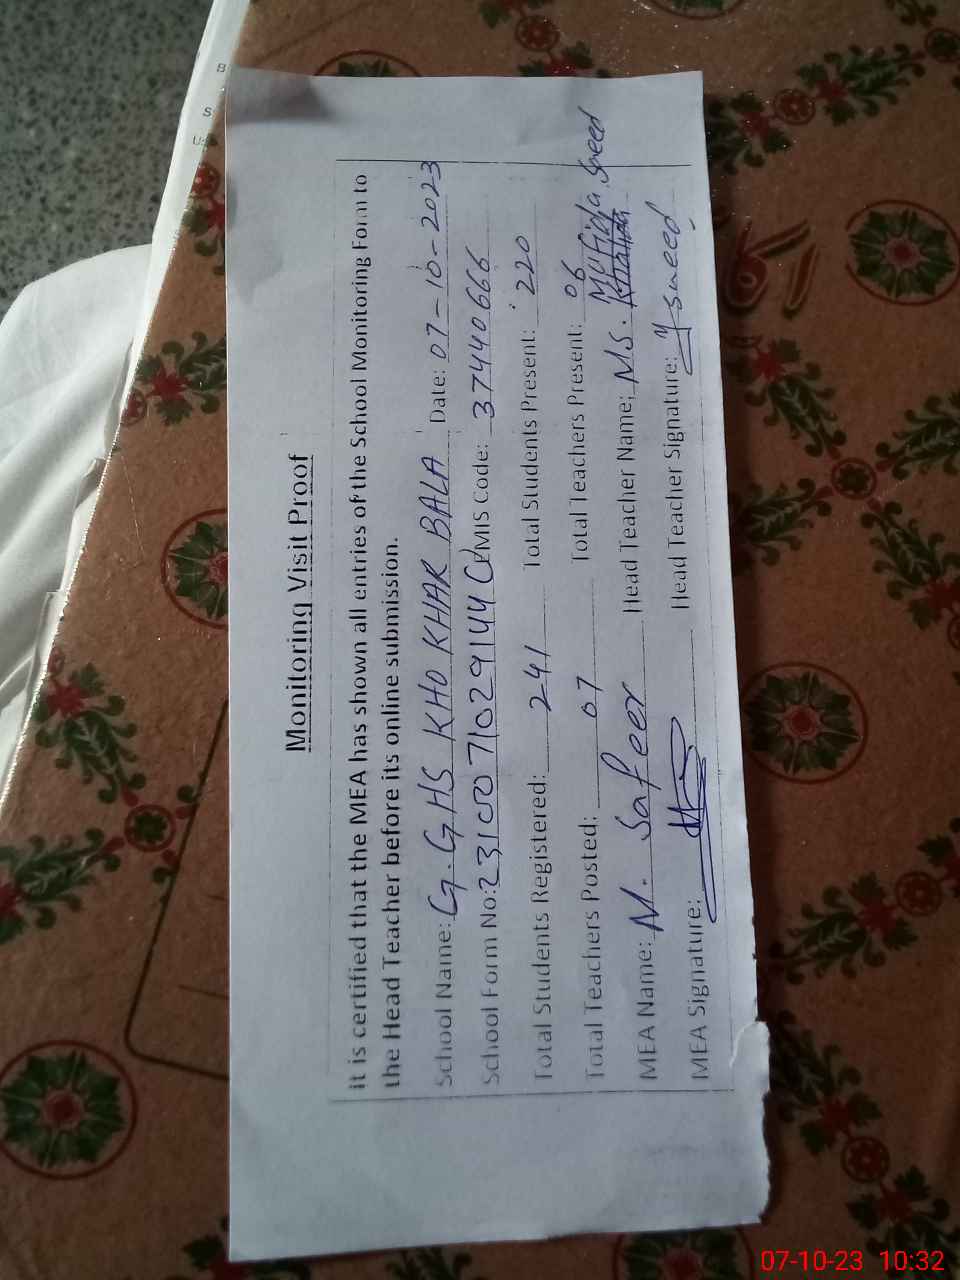 B
S
U:
Monitoring Visit Proof
it is certified that the MEA has shown all entries of the School Monitoring Form to
the Head Teacher before its online submission.
School Name: G.GHS KHO KHAR BALA Date: 07-10-2023
School Form No: EMIS Code: 37440666
Total Students Registered: 241 Total Students Present: 220
Total Teachers Posted: 07 Total Teachers Present: 06
MEA Name: M. Safeer Head Teacher Name: Ms. Saeed
MEA Signature: Head Teacher Signature: Saeed
07-10-23 10:32